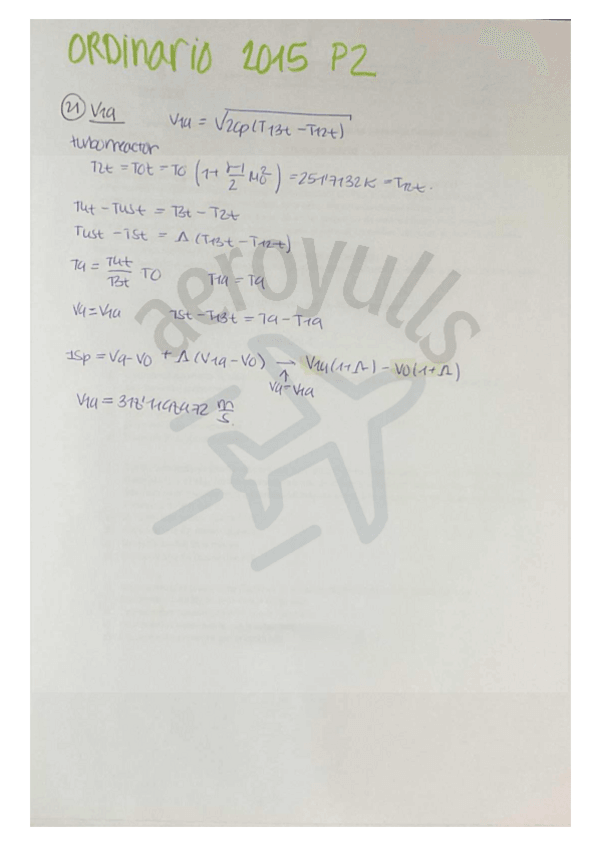 ORDINARIO 2015 P2
21) V19
V19 = √2cp(T13t - T12t)
turborreactor
T2t = T0t = T0 (1 + (γ-1)/2 M0²) = 251'7132K = T12t.
T4t - T45t = T3t - T2t
T45t - T5t = Λ (T13t - T12t)
T9 = T4t/T3t T0 T19 = T9
V9 = V19 T5t - T13t = T9 - T19
Isp = V9 - V0 + Λ (V19 - V0) → V19(1+Λ) - V0(1+Λ)
↑
V9 = V19
m/s.
aeroyulls